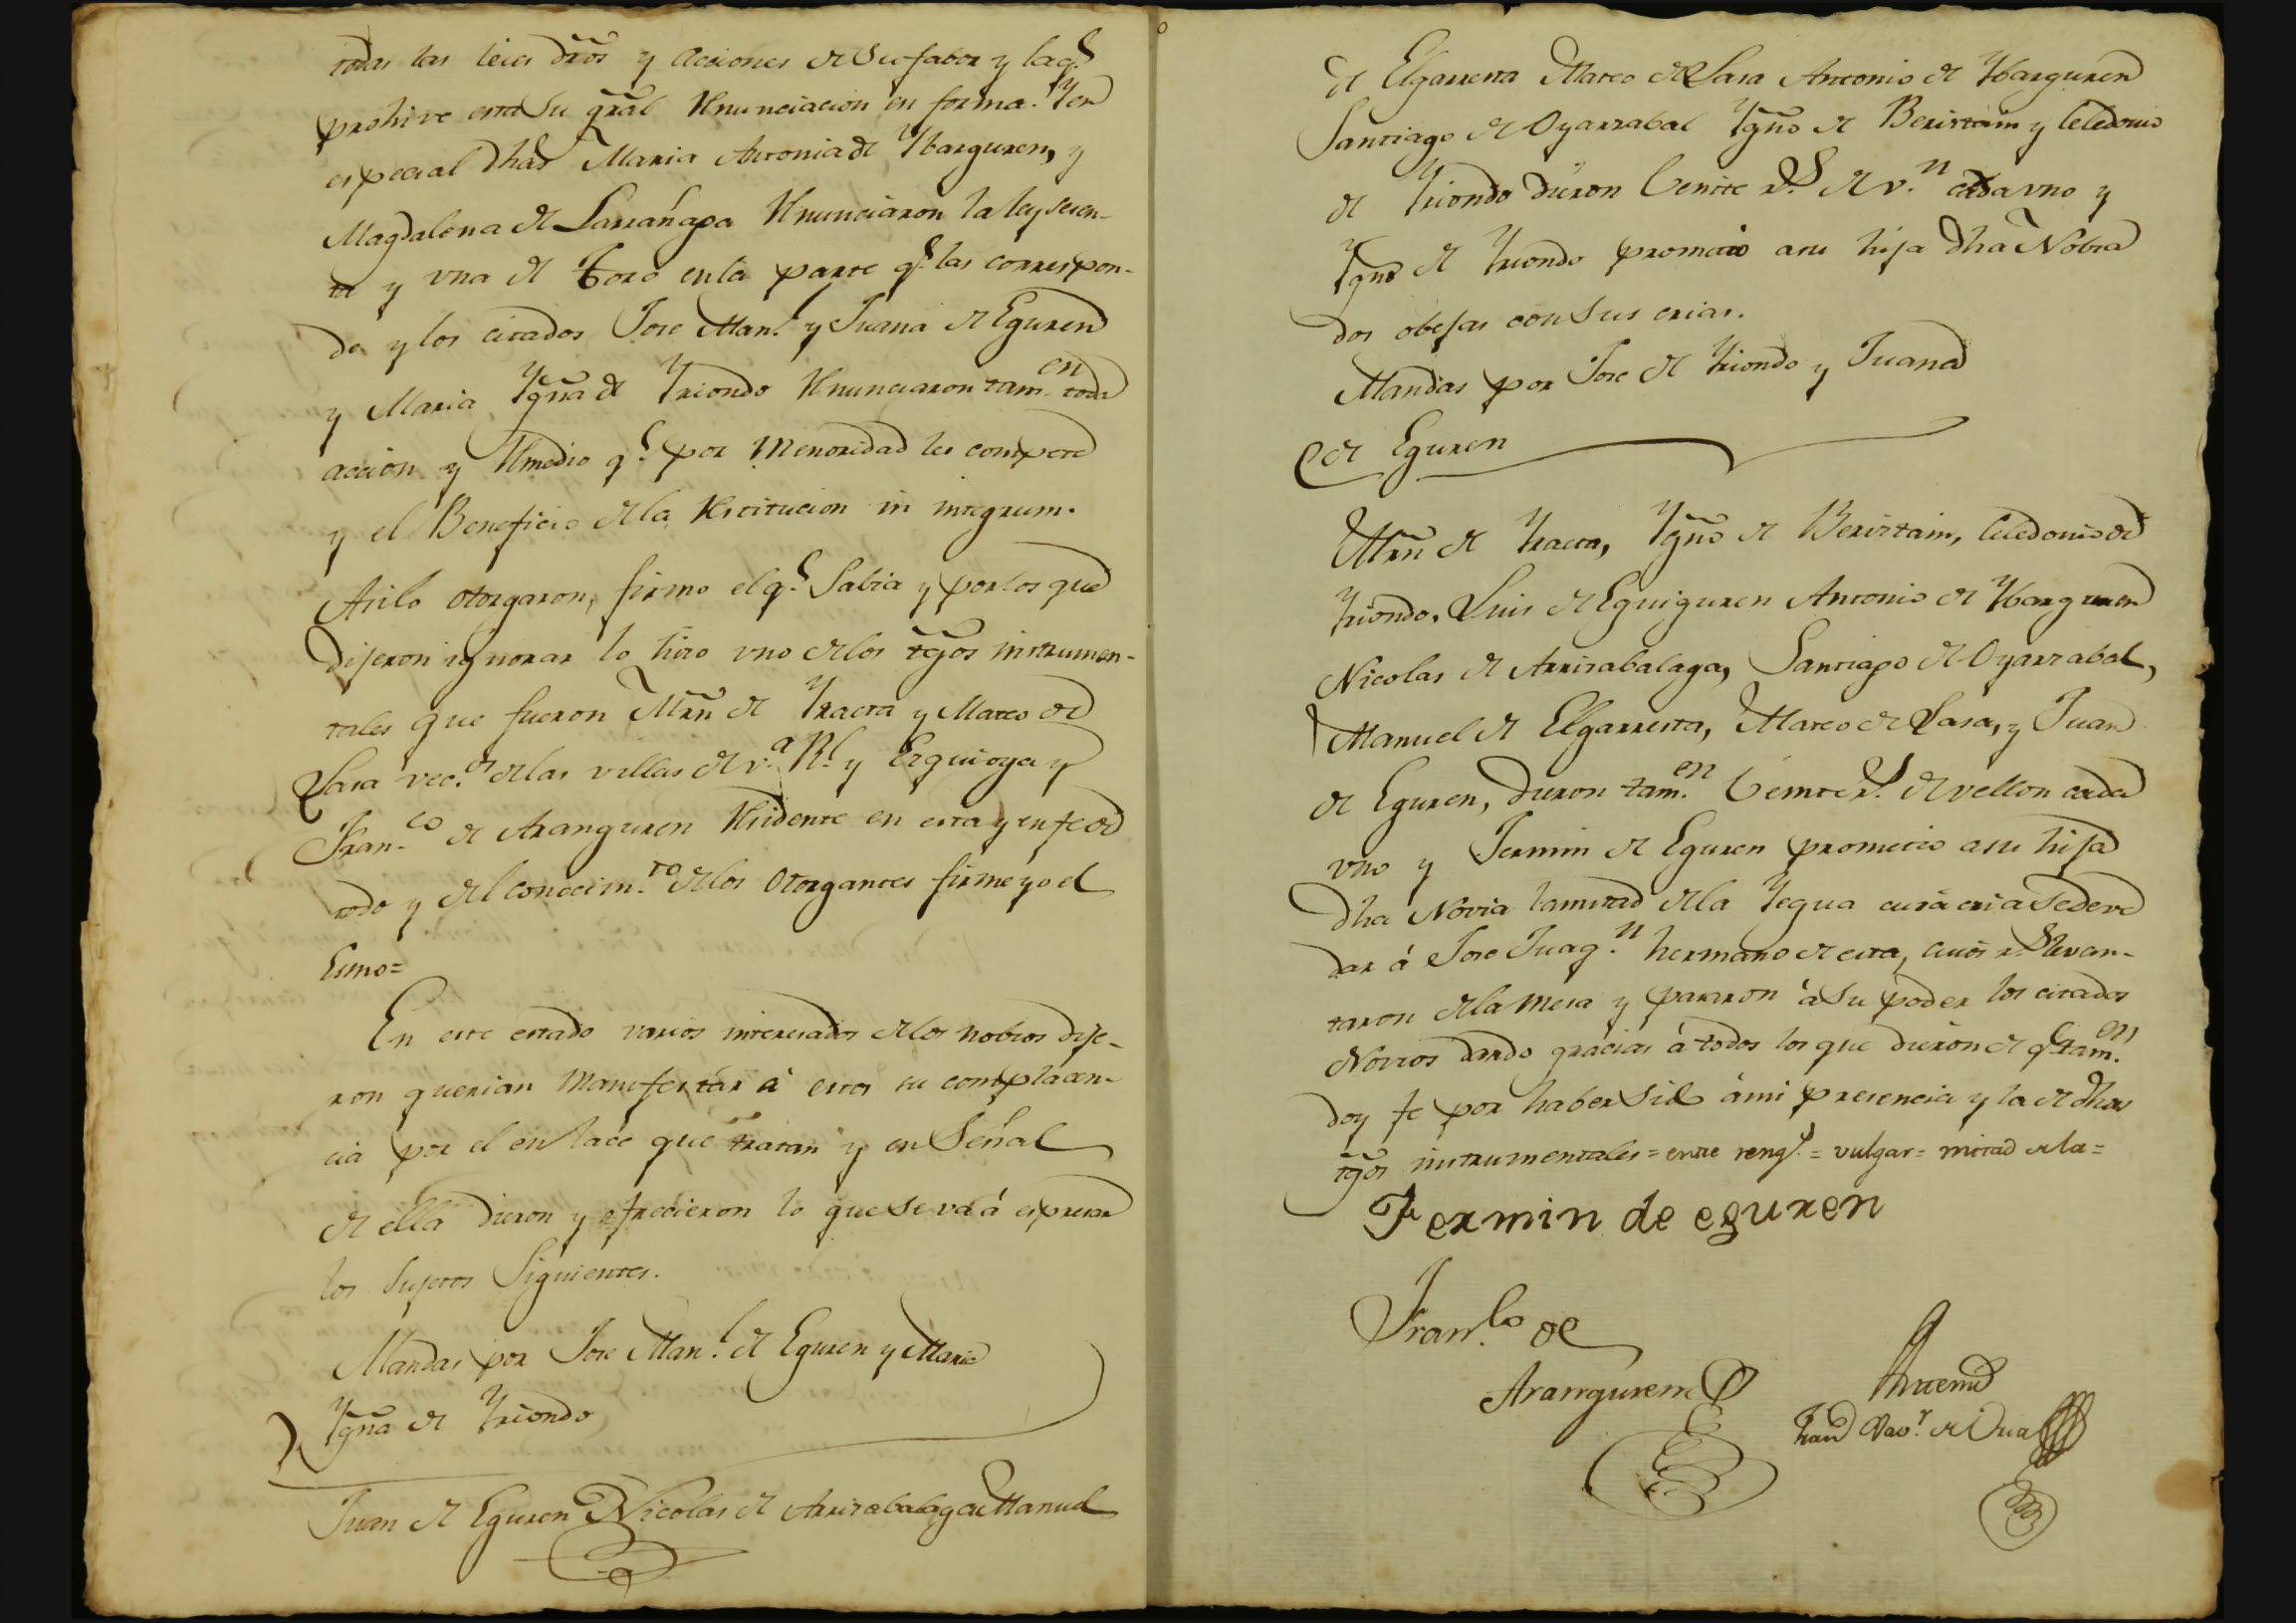 todas las leies dr̃os y acciones de su fabor y la q.e
prohive esta su gr̃al Renunciacion en forma. Y en
especial dhas Maria Antonia de Ybarguren, y
Magdalena de Larrañaga Renunciaron la ley sesen-
ta y vna de Toro en la parte q.e las correspon-
de y los citados Jose Man.l y Juana de Eguren
y Maria Ygñа de Yriondo Renunciaron tam.en toda
accion y Remedio q.e por Menoridad les compete
y el Beneficio de la Restitucion in integrum.
Asilo otorgaron, firmo el q.e Sabia y por los que
dijeron ignorar lo hizo vno de los tg̃os instrumen-
tales que fueron Mr̃n de Yraeta y Mateo de
Lasa vec.os de las villas de v.a R.l y Ezquioga y
Fran.co de Aranguren Residente en esta y en fe de
todo y del conocim.to de los Otorgantes firme yo el
Esno=
En este estado varios interesados de los nobios dije-
ron querian Manifestár á estos su complacen-
cia por el enlace que tratan y en Señal
de ella dieron y ofrecieron lo que se vá á espresar
los Sujetos Siguientes.
Mandas por Jose Man.l de Eguren y Maria
Ygñа de Yriondo
Juan de Eguren Nicolas de Arrizabalaga Manuel
de Elgarresta Mateo de Lasa Antonio de Ybarguren
Santiago de Oyarzabal Ygño de Beristain y Celedonio
de Yriondo dieron Veinte r.s de v.n cada vno y
Ygño de Yriondo prometió a su hija dha Nobia
dos obejas con Sus crias.
Mandas por Jose de Yriondo y Juana
de Eguren
Mr̃n de Yraeta, Ygño de Beristain, Celedonio de
Yriondo, Luis de Eguiguren Antonio de Ybarguren
Nicolas de Arrizabalaga, Santiago de Oyarzabal,
Manuel de Elgarresta, Mateo de Lasa, y Juan
de Eguren, dieron tam.en Veinte r.s de vellon cada
vno y Fermin de Eguren prometio a su hija
dha Novia la mitad de la Yegua cuia cria se deve
dar á Jose Juaq.n hermano de esta, cuios r.s levan-
taron de la Mesa y pasaron á Su poder los citados
Novios dando gracias á todos los que dieron de q.e tam.en
doy fe por haber Sido á mi presencia y la de dhos
tg̃os instrumentales = entre reng.s = vulgar = mitad de la =
Fermin de eguren
Fran.co de
Aranguren
Antemi
Juan Vav.r de Vria